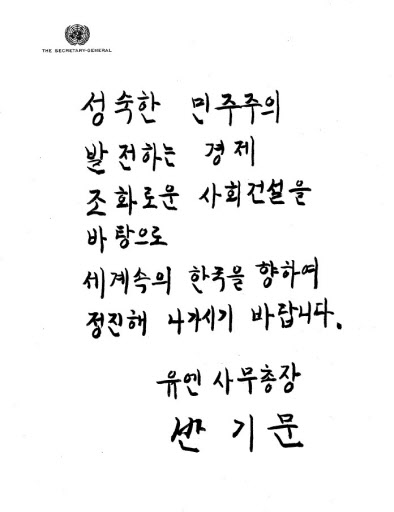 THE SECRETARY-GENERAL
성숙한 민주주의
발전하는 경제
조화로운 사회건설을
바탕으로
세계속의 한국을 향하여
정진해 나가시기 바랍니다.
유엔 사무총장
반기문